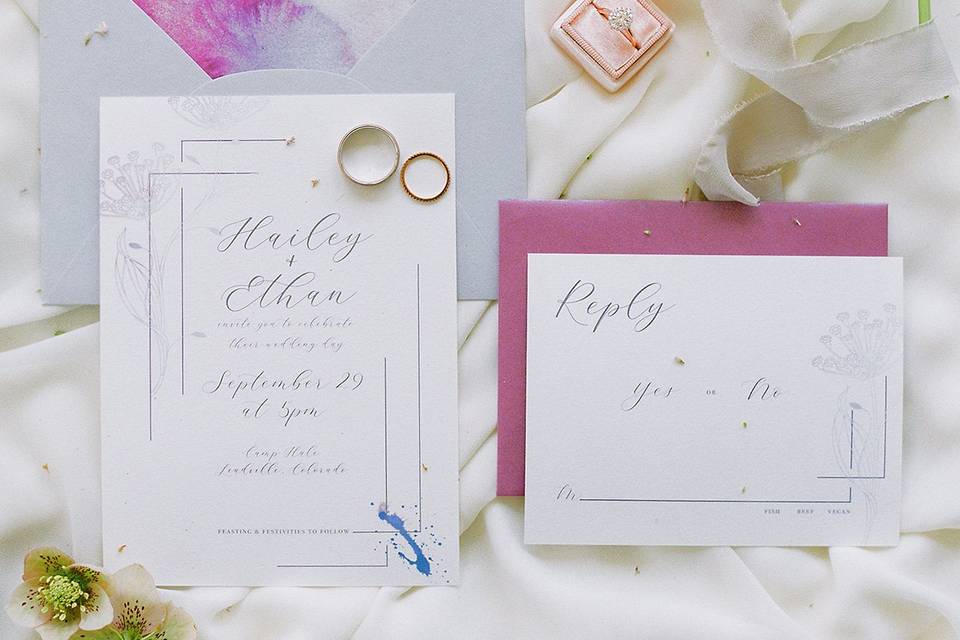 Hailey
+
Ethan
invite you to celebrate
their wedding day
September 29
at 5pm
Camp Hale
Leadville, Colorado
FEASTING & FESTIVITIES TO FOLLOW
Reply
Yes OR No
M
FISH BEEF VEGAN